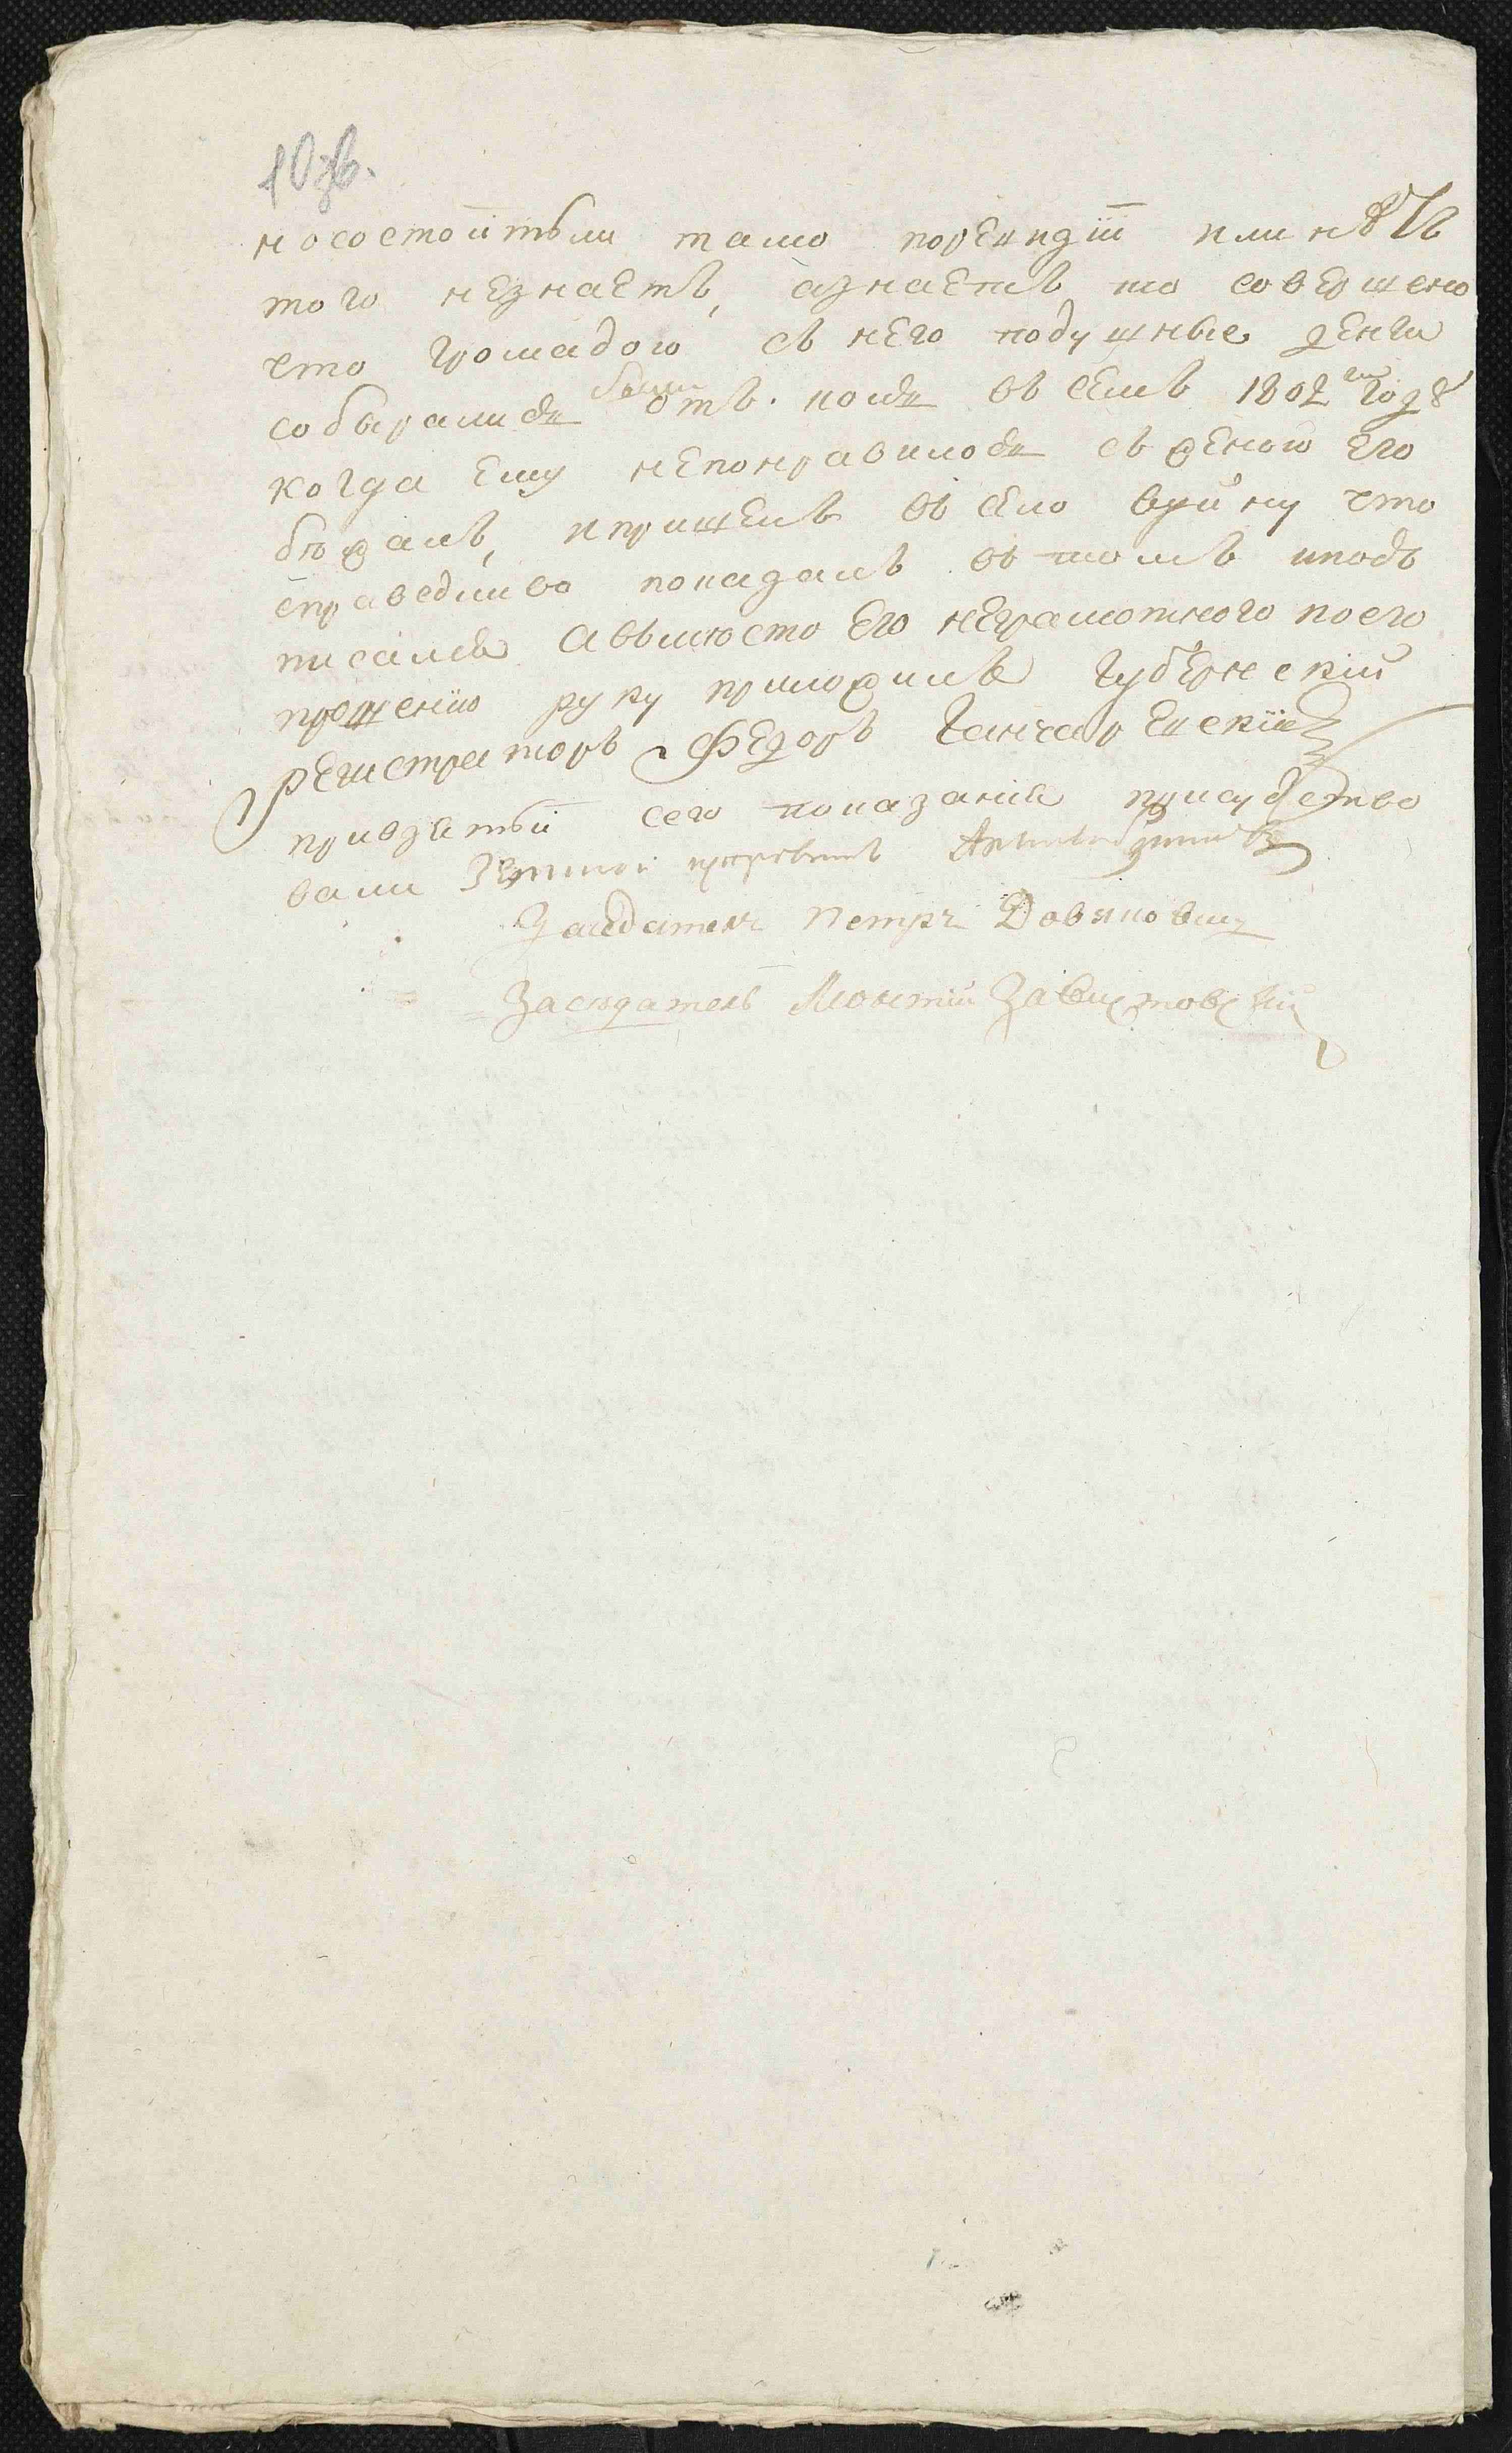 10 зв.
но состоитъ ли тамо по ревидзіи или нѣтъ
того незнаетъ, а знаетъ то совершено
что громадою съ него подушные денги
собыралися были отъ. коля въ семъ 1802 году
когда ему непонравилося съ женою его
бежалъ, и пришелъ въ село что
справедливо показалъ въ томъ и подъ
писался а вьмюсто его неграмотного по его
прошению руку приложилъ Губернскій
Регистраторъ Федоръ Ганчаревскій
при взятьи сего показания присудство
вали Земской исправникъ
Заседатель Петръ Довяковичъ
Заседатель Леонтій Завистовскій